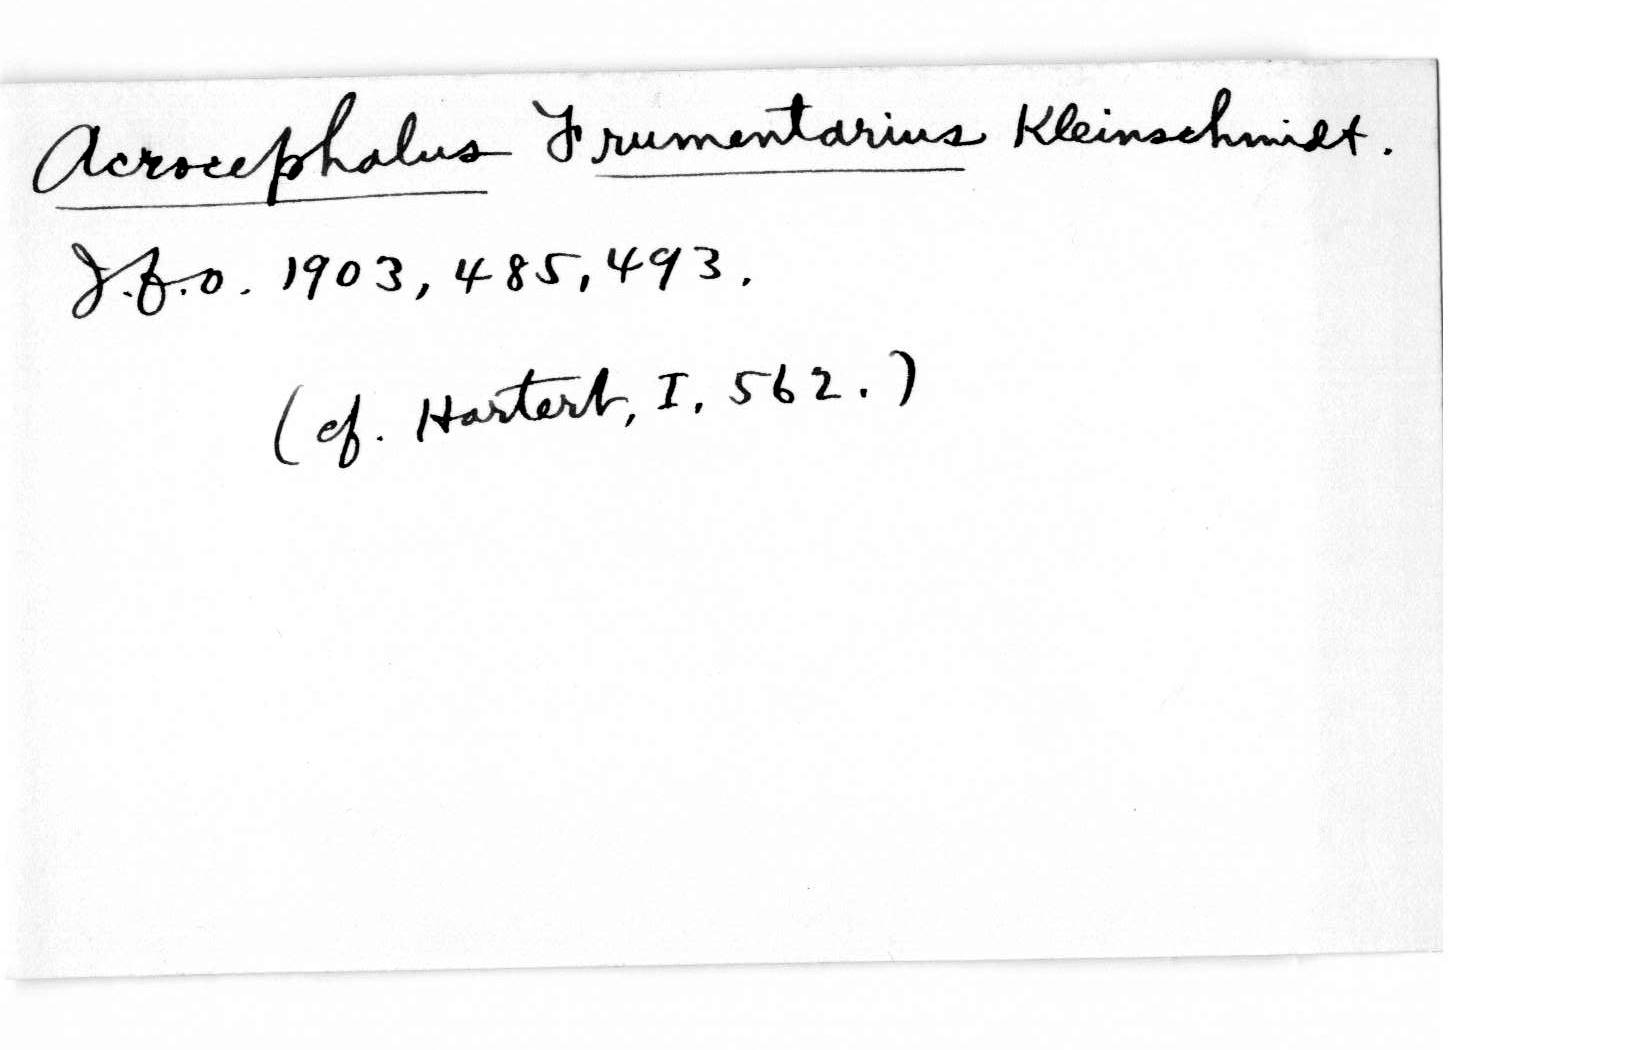 Acrocephalus Frumentarius Kleinschmidt.
J.f.O. 1903, 485, 493.
(cf. Hartert, I, 562.)